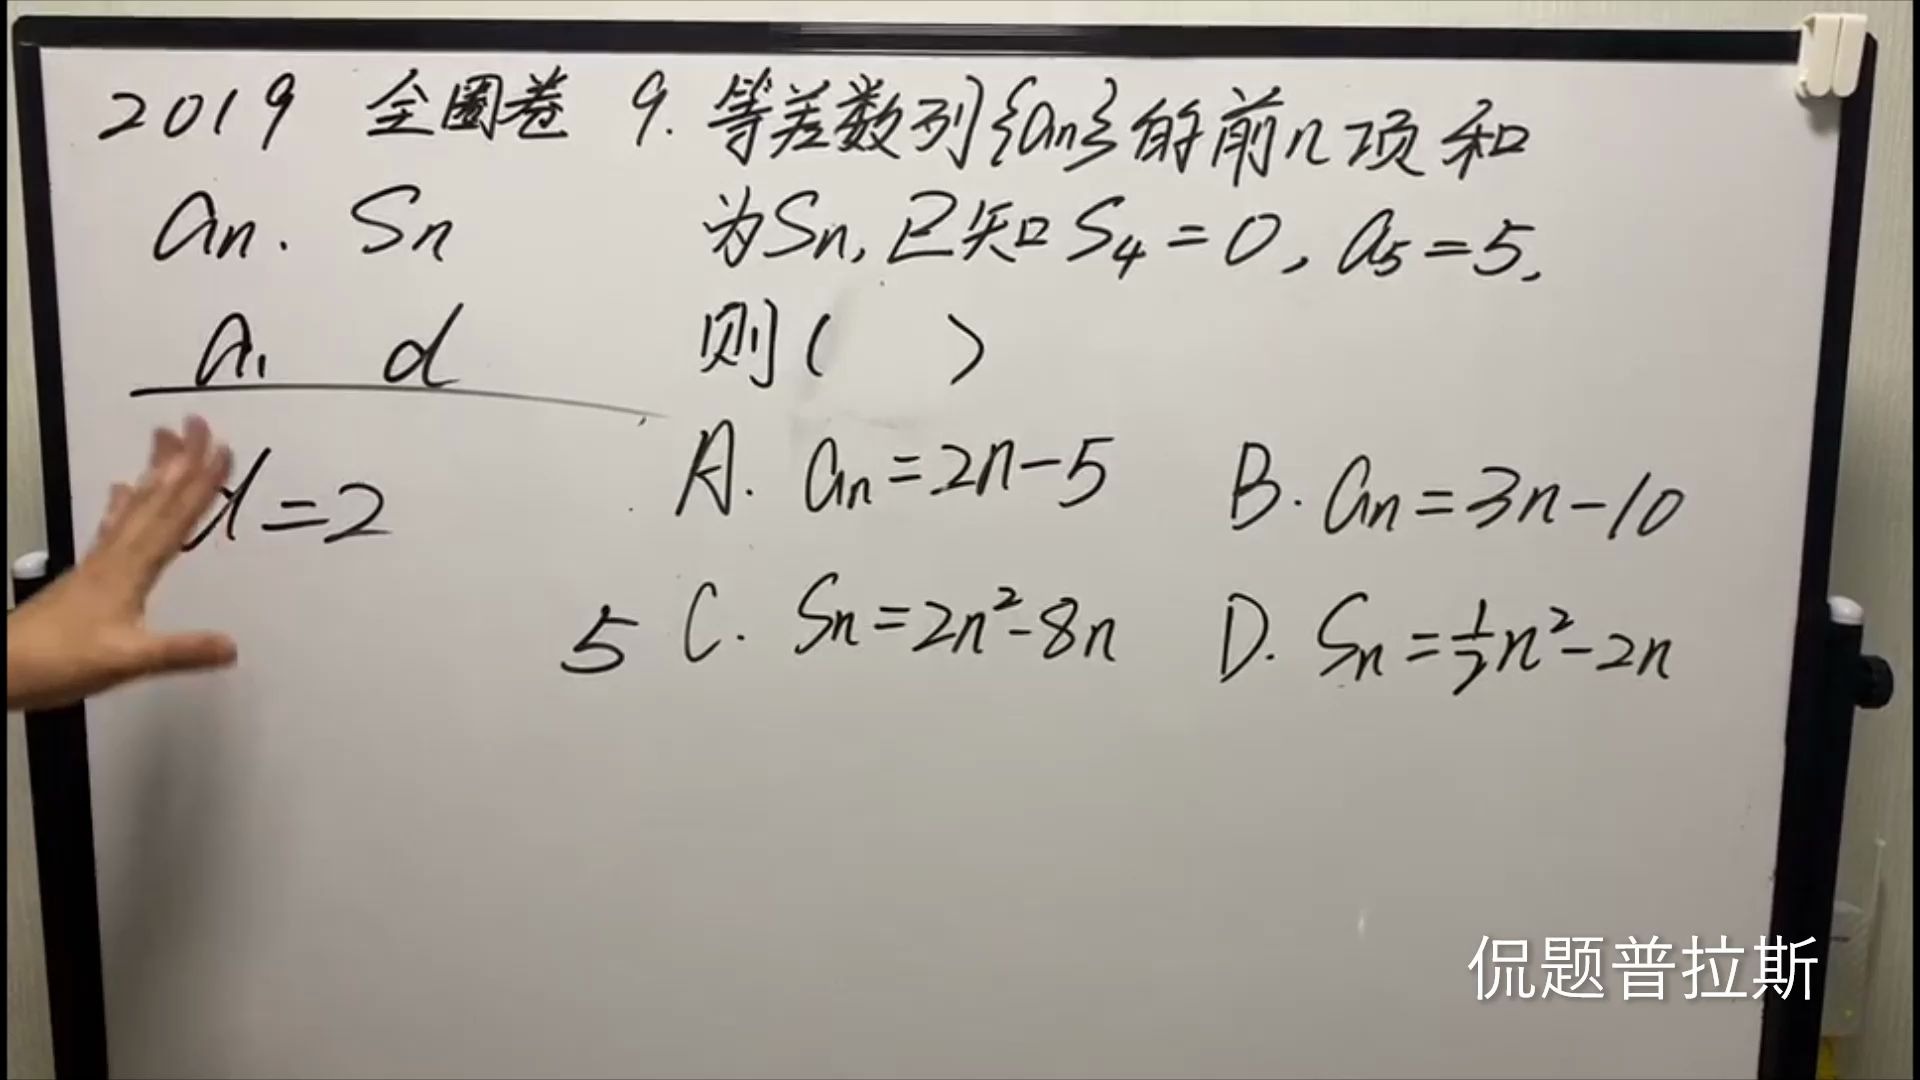 2019 全国卷 9. 等差数列{an}的前n项和
an. Sn 为Sn, 已知S4=0, a5=5,
a1 d 则( )
d=2 A. an=2n-5 B. an=3n-10
5 C. Sn=2n²-8n D. Sn=1/2n²-2n
侃题普拉斯